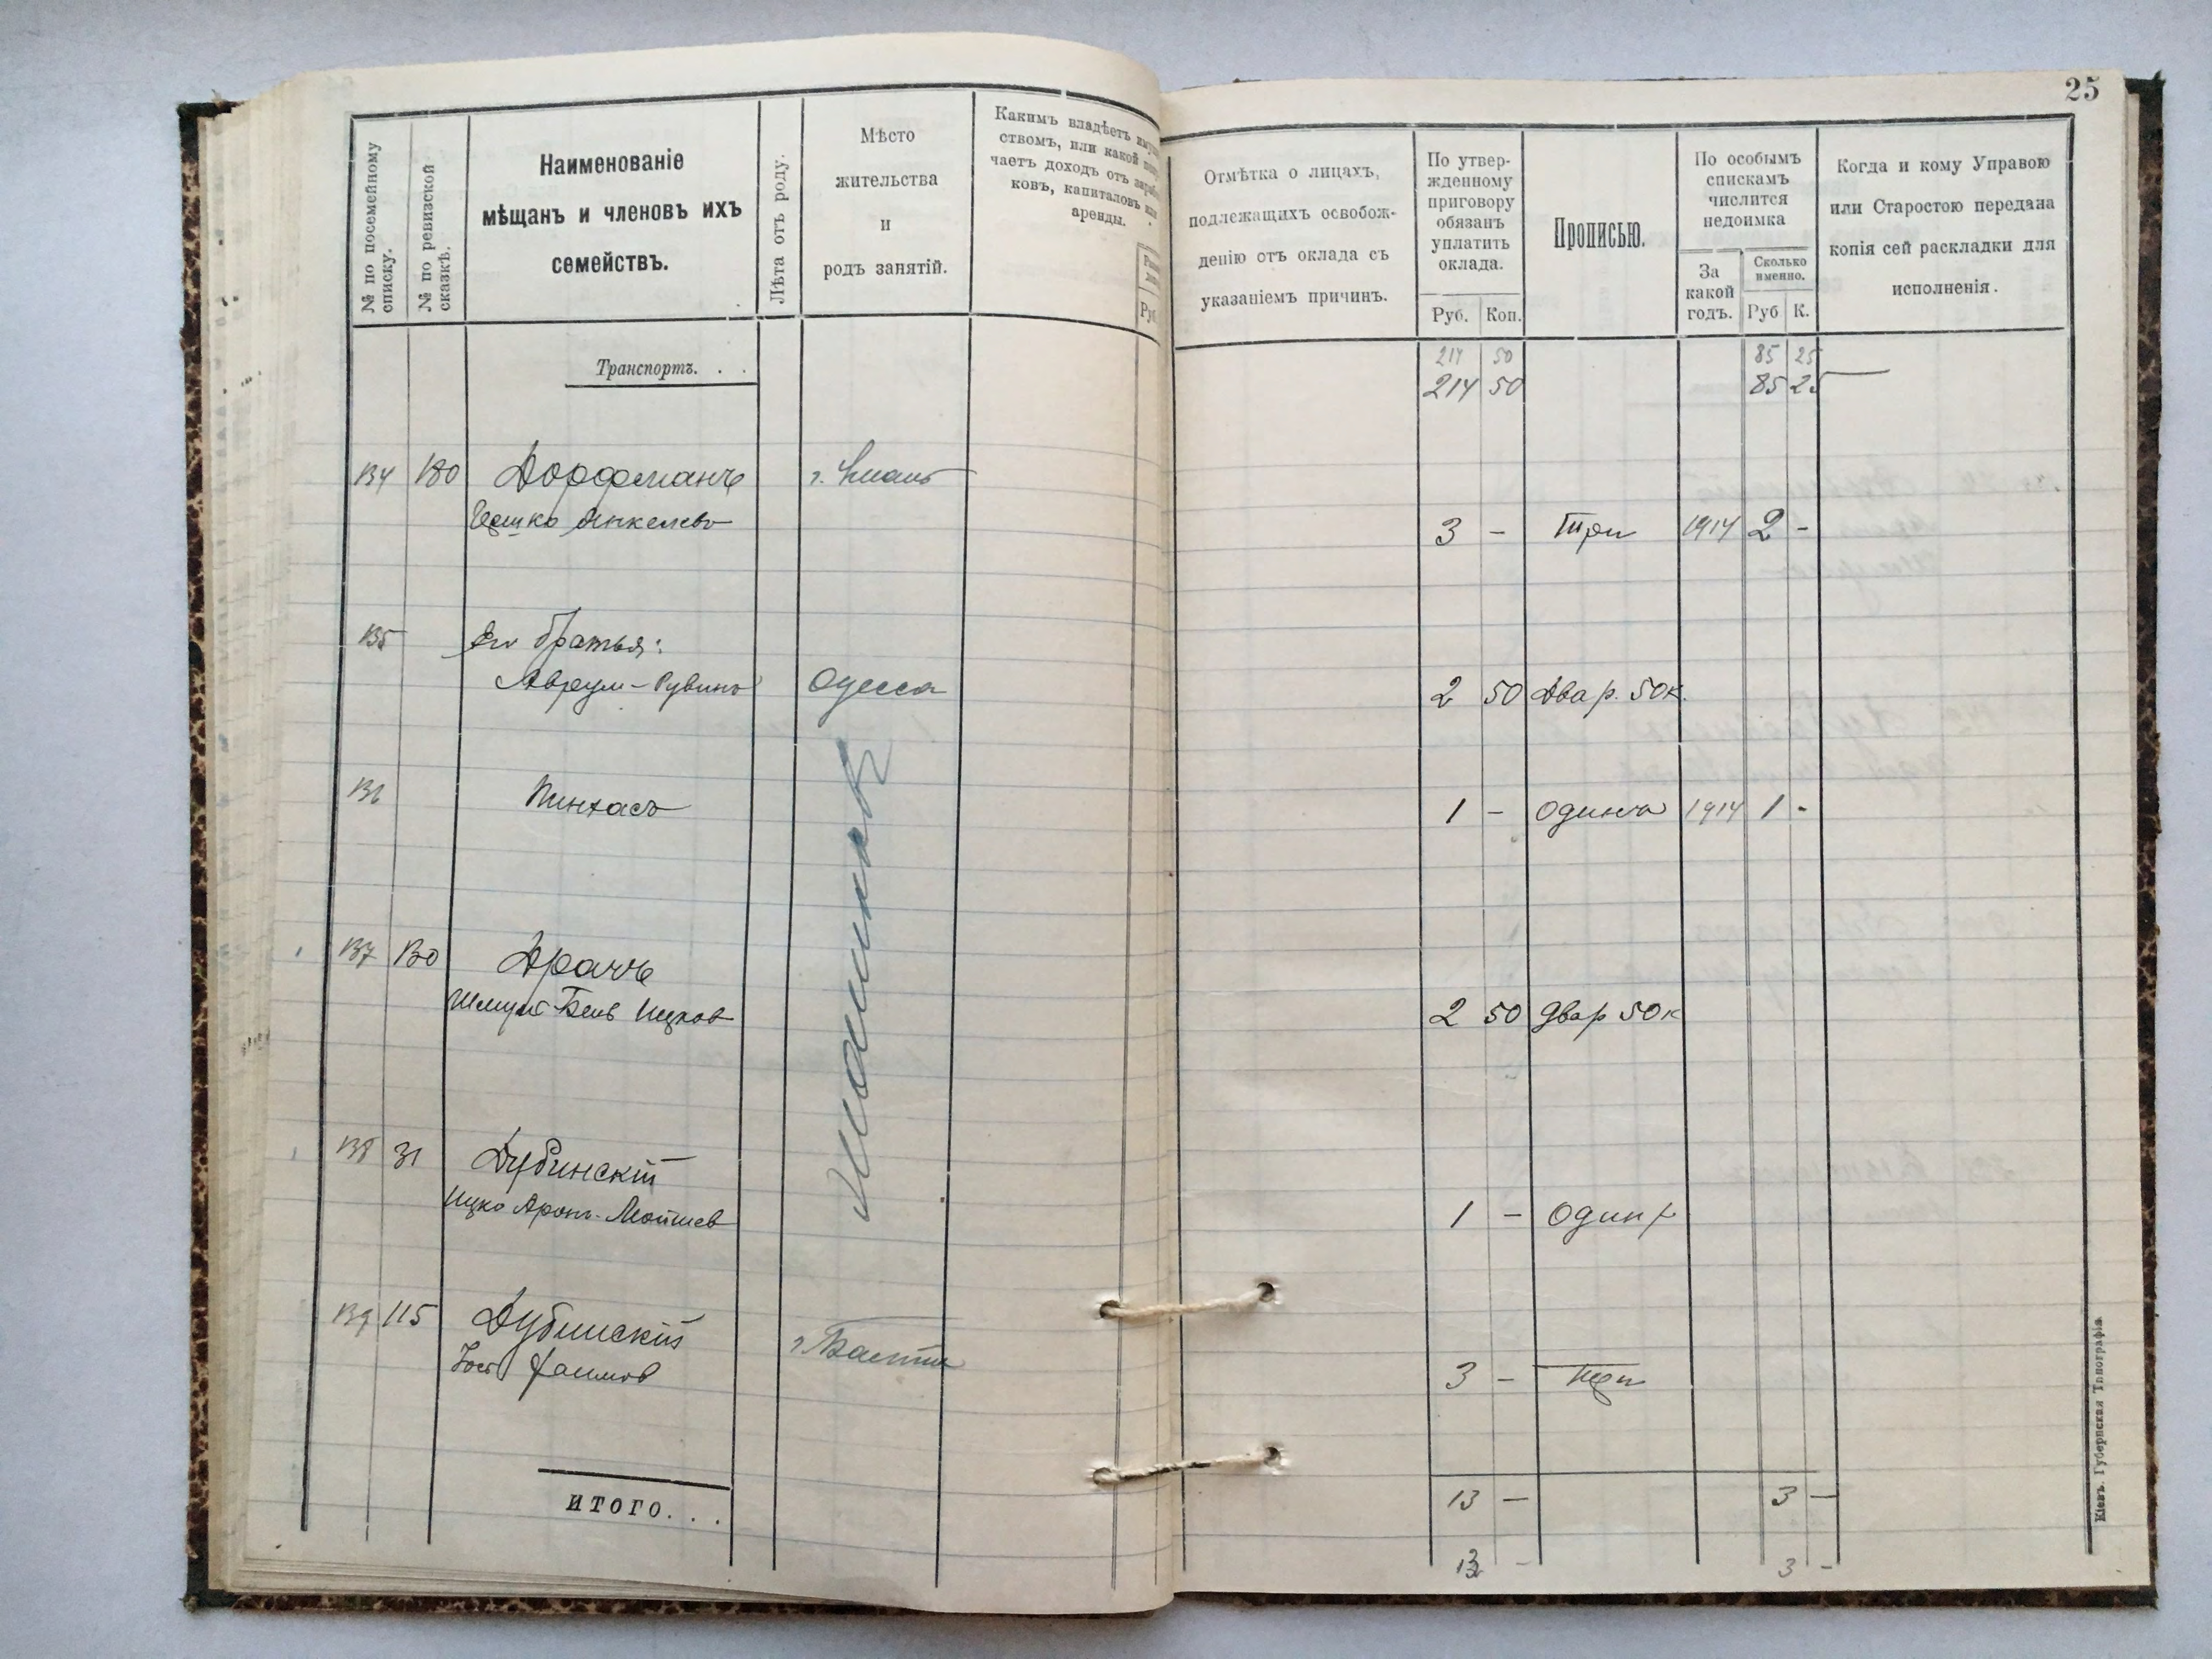 25
№ по посемейному
списку.
№ по ревизской
сказкѣ.
Наименованіе
мѣщанъ и членовъ ихъ
семействъ.
Лѣта отъ роду.
Мѣсто
жительства
и
родъ занятій.
Какимъ владѣетъ
ствомъ, или какой
чаетъ доходъ отъ
ковъ, капиталовъ или
аренды.
Руб.
Отмѣтка о лицахъ,
подлежащихъ освобож-
денію отъ оклада съ
указаніемъ причинъ.
По утвер-
жденному
приговору
обязанъ
уплатить
оклада.
Руб. Коп.
Прописью.
По особымъ
спискамъ
числится
недоимка
За
какой
годъ.
Сколько
именно.
Руб К.
Когда и кому Управою
или Старостою передана
копія сей раскладки для
исполненія.
Транспортъ. . .
214 50 85 25
214 50 85 25
134 180 Дорфманъ г. Умань
Ицко Янкелевъ 3 - Три 1914 2 -
135 Его братья:
Аврум-Рувинъ Одесса 2 50 Два р. 50 к.
136 Пинхасъ 1 - Одинъ 1914 1 -
137 130 Драчъ
Шмуль-Беръ Ицков 2 50 Два р 50 к
138 31 Дубинскій
Ицко Аронъ-Мошков 1 - Один р
139 115 Дубинскій
Хаимов 3 - Три
ИТОГО. . .
13 - 3 -
13 - 3 -
Кіевъ. Губернская Типографія.